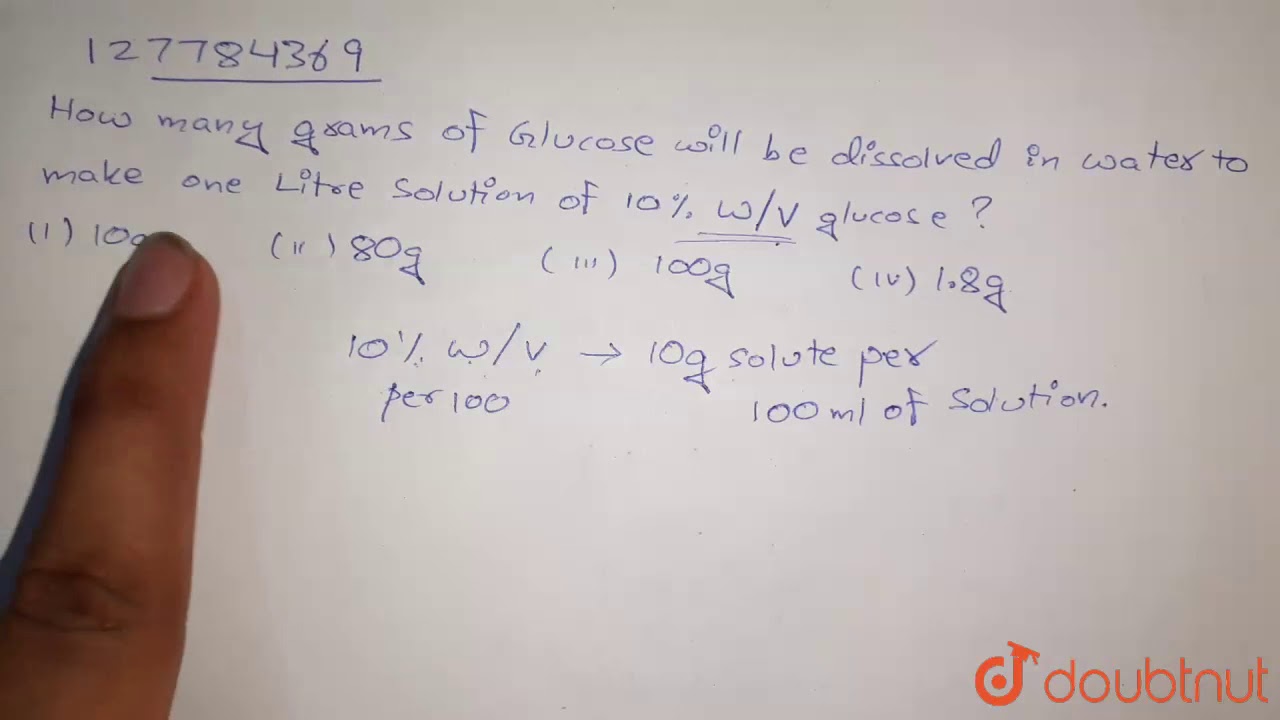 127784369
How many grams of Glucose will be dissolved in water to
make one Litre solution of 10% W/V glucose ?
(I) 10g (II) 80g (III) 100g (IV) 1.8g
10% W/V → 10g solute per
per 100 100 ml of solution.
doubtnut